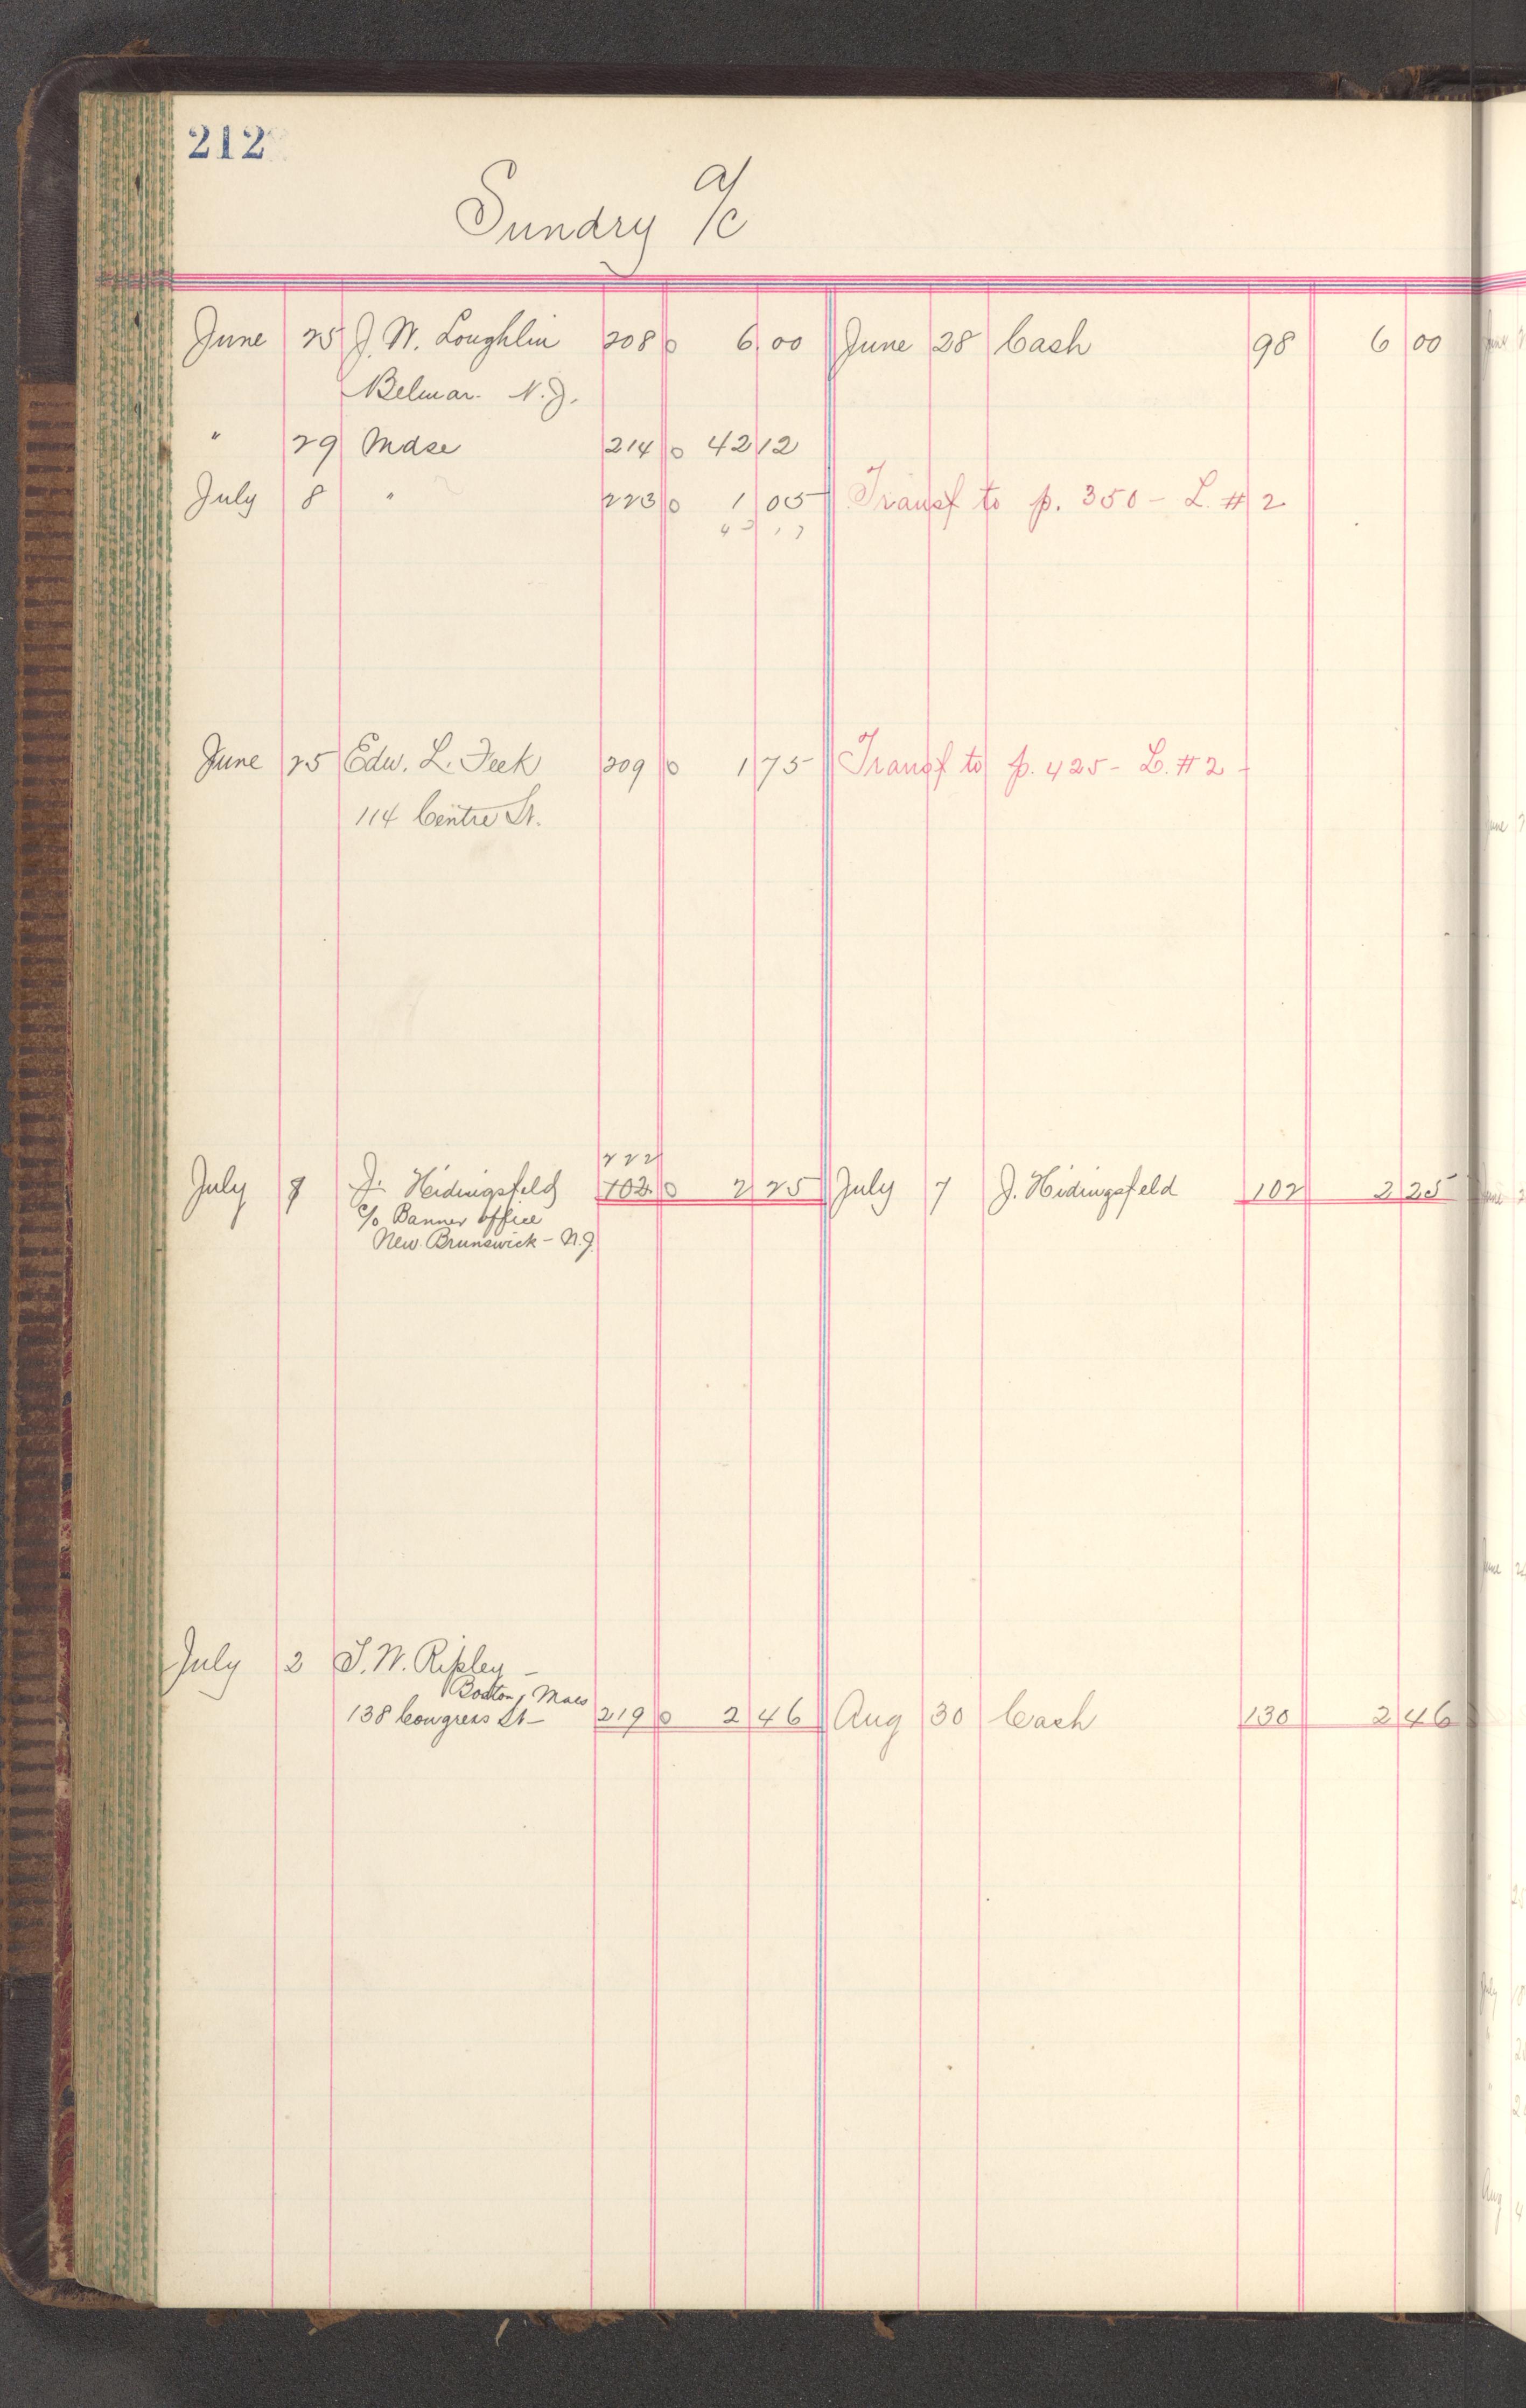 212
Sundry a/c
June 25 J. W. Loughlin 208 0 6 00 June 28 Cash 98 6 00
Belmar. N.J.
" 29 Mdse 214 0 42 12
July 8 " 223 0 1 05 Transf to p. 350 - L. # 2
June 25 Edw. L. Feek 209 0 1 75 Transf to p. 425 - L. # 2 -
114 Centre St.
222
July 8 J. Heidingsfeld 102 0 2 25 July 7 J. Hidingsfeld 102 2 25
c/o Banner office
New Brunswick - N.J.
July 2 T. W. Ripley -
Boston, Mass
138 Congress St - 219 0 2 46 Aug 30 Cash 130 2 46